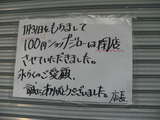 1月31日をもちまして
100円ショップ
は閉店
させていただきました。
永らくのご愛顧、
誠にありがとうございました。
店長